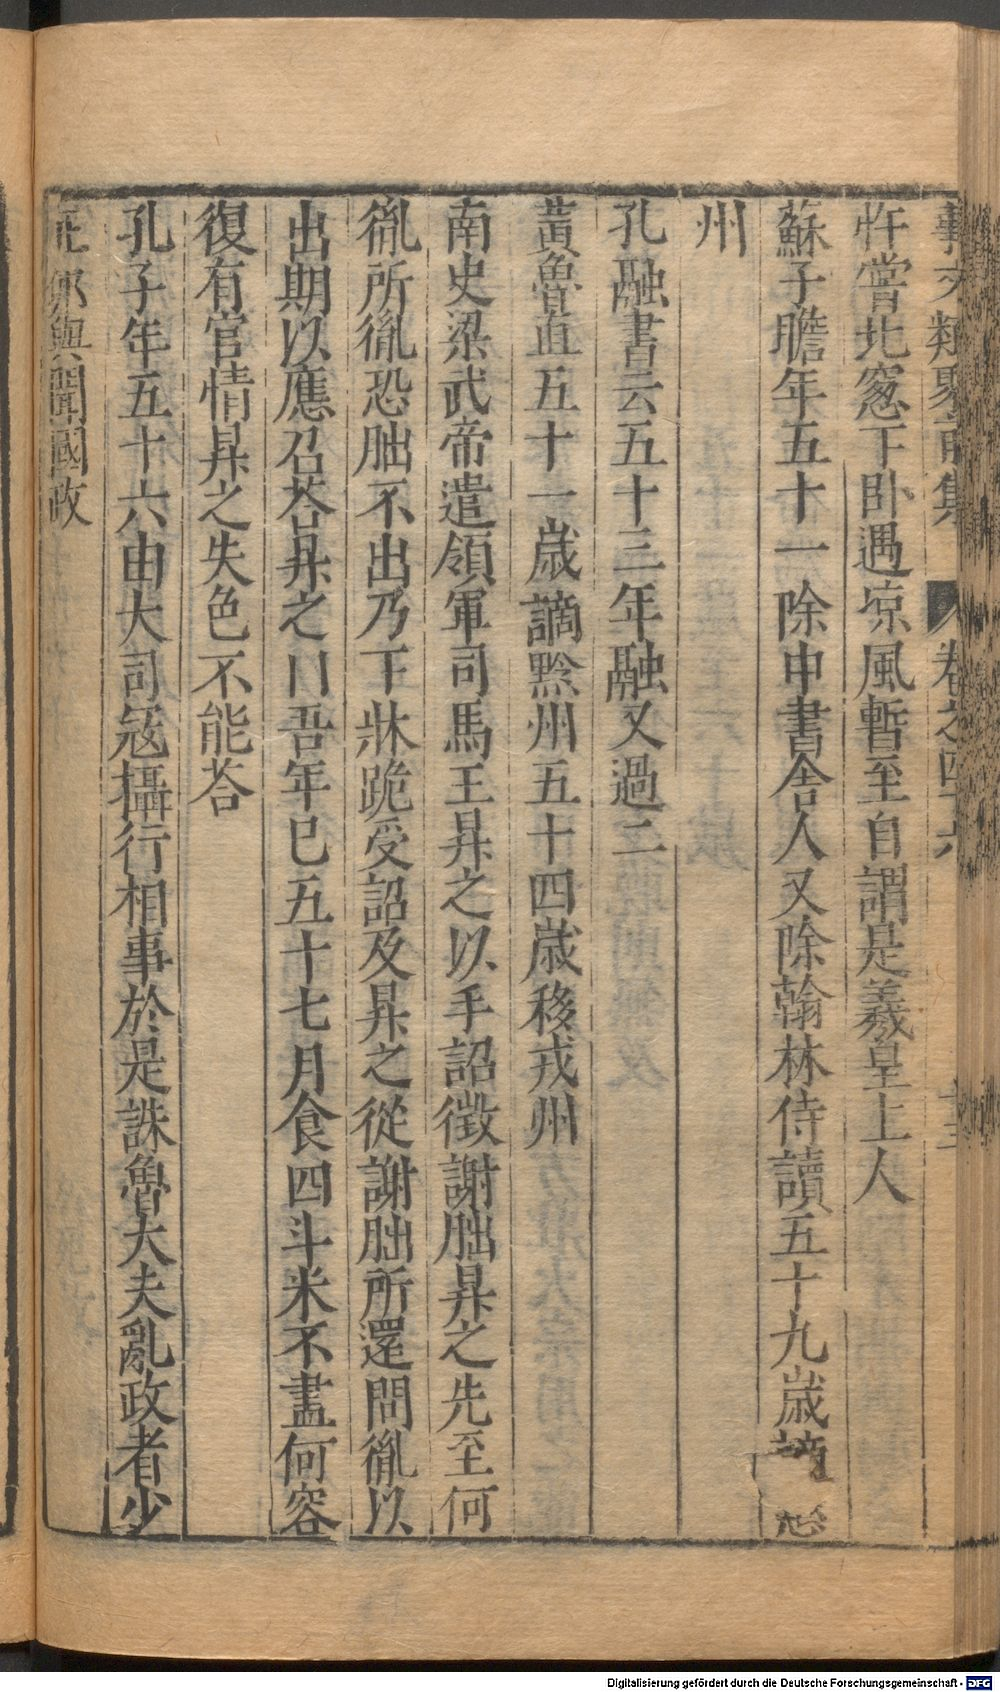 事文類聚前集 卷之四十六 十三
忤嘗北窻下卧遇凉風暫至自謂是羲皇上人
蘇子瞻年五十一除中書舍人又除翰林侍讀五十九歲謫
州
孔融書云五十三年融又過二
黃魯直五十一歲謫黔州五十四歲移戎州
南史梁武帝遣領軍司馬王杲之以手詔徵謝朏杲之先至何
胤所胤恐朏不出乃下牀跪受詔及杲之從謝朏所還問胤以
出期以應召荅杲之曰吾年已五十七月食四斗米不盡何容
復有官情杲之失色不能荅
孔子年五十六由大司寇攝行相事於是誅魯大夫亂政者少
正夘與聞國政
Digitalisierung gefördert durch die Deutsche Forschungsgemeinschaft - DFG